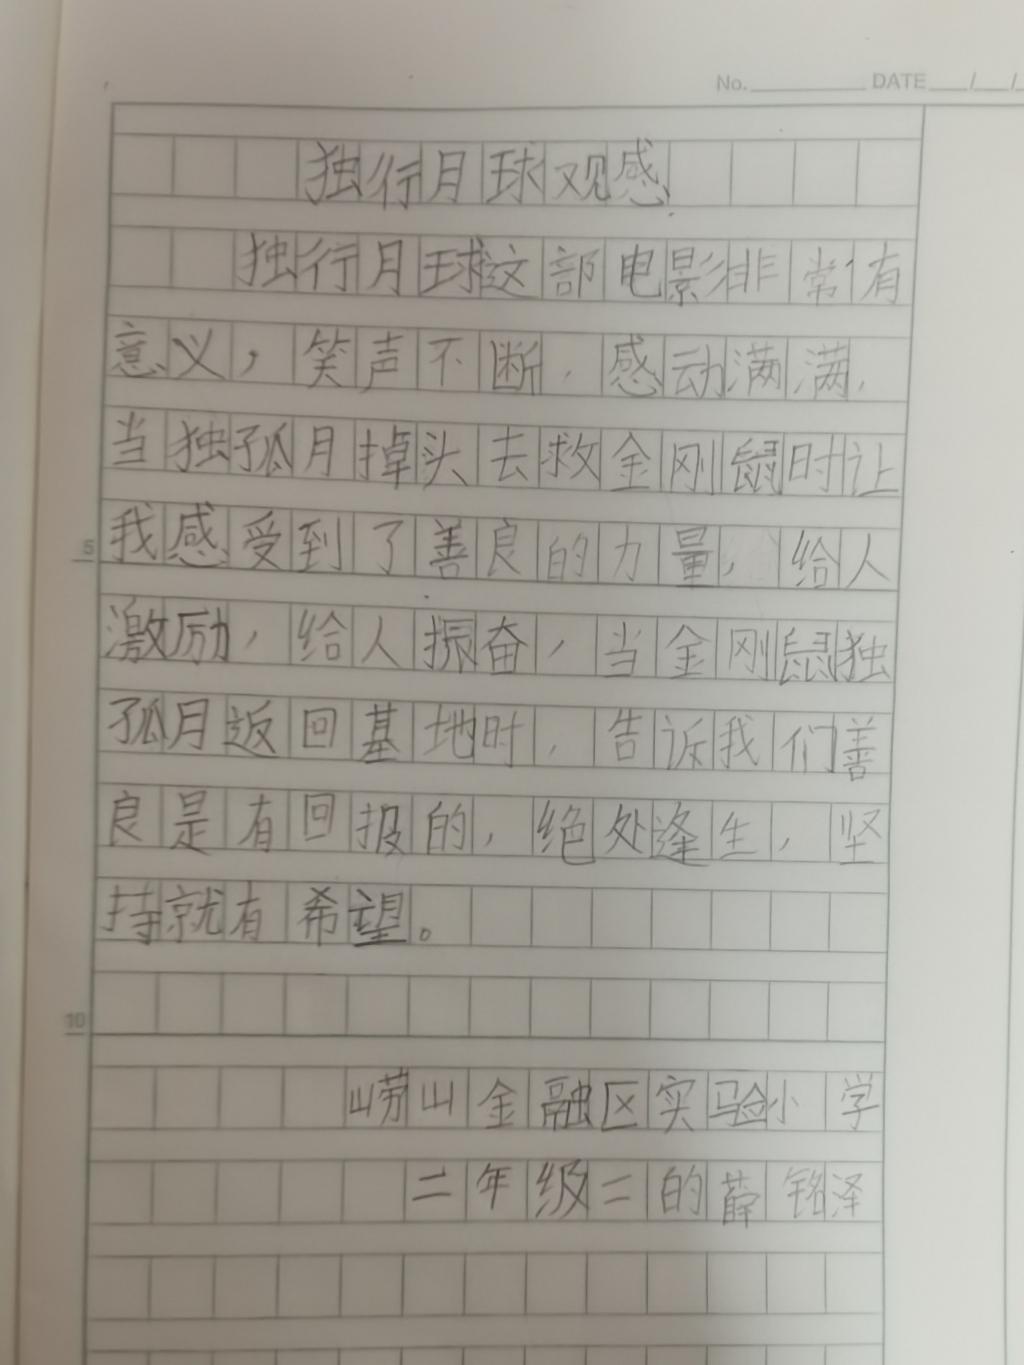 No. DATE / /
独行月球观感
独行月球这部电影非常有
意义，笑声不断，感动满满，
当独孤月掉头去救金刚鼠时让
我感受到了善良的力量，给人
5
激励，给人振奋，当金刚鼠独
孤月返回基地时，告诉我们善
良是有回报的，绝处逢生，坚
持就有希望。
10
崂山金融区实验小学
二年级二的薛铭泽